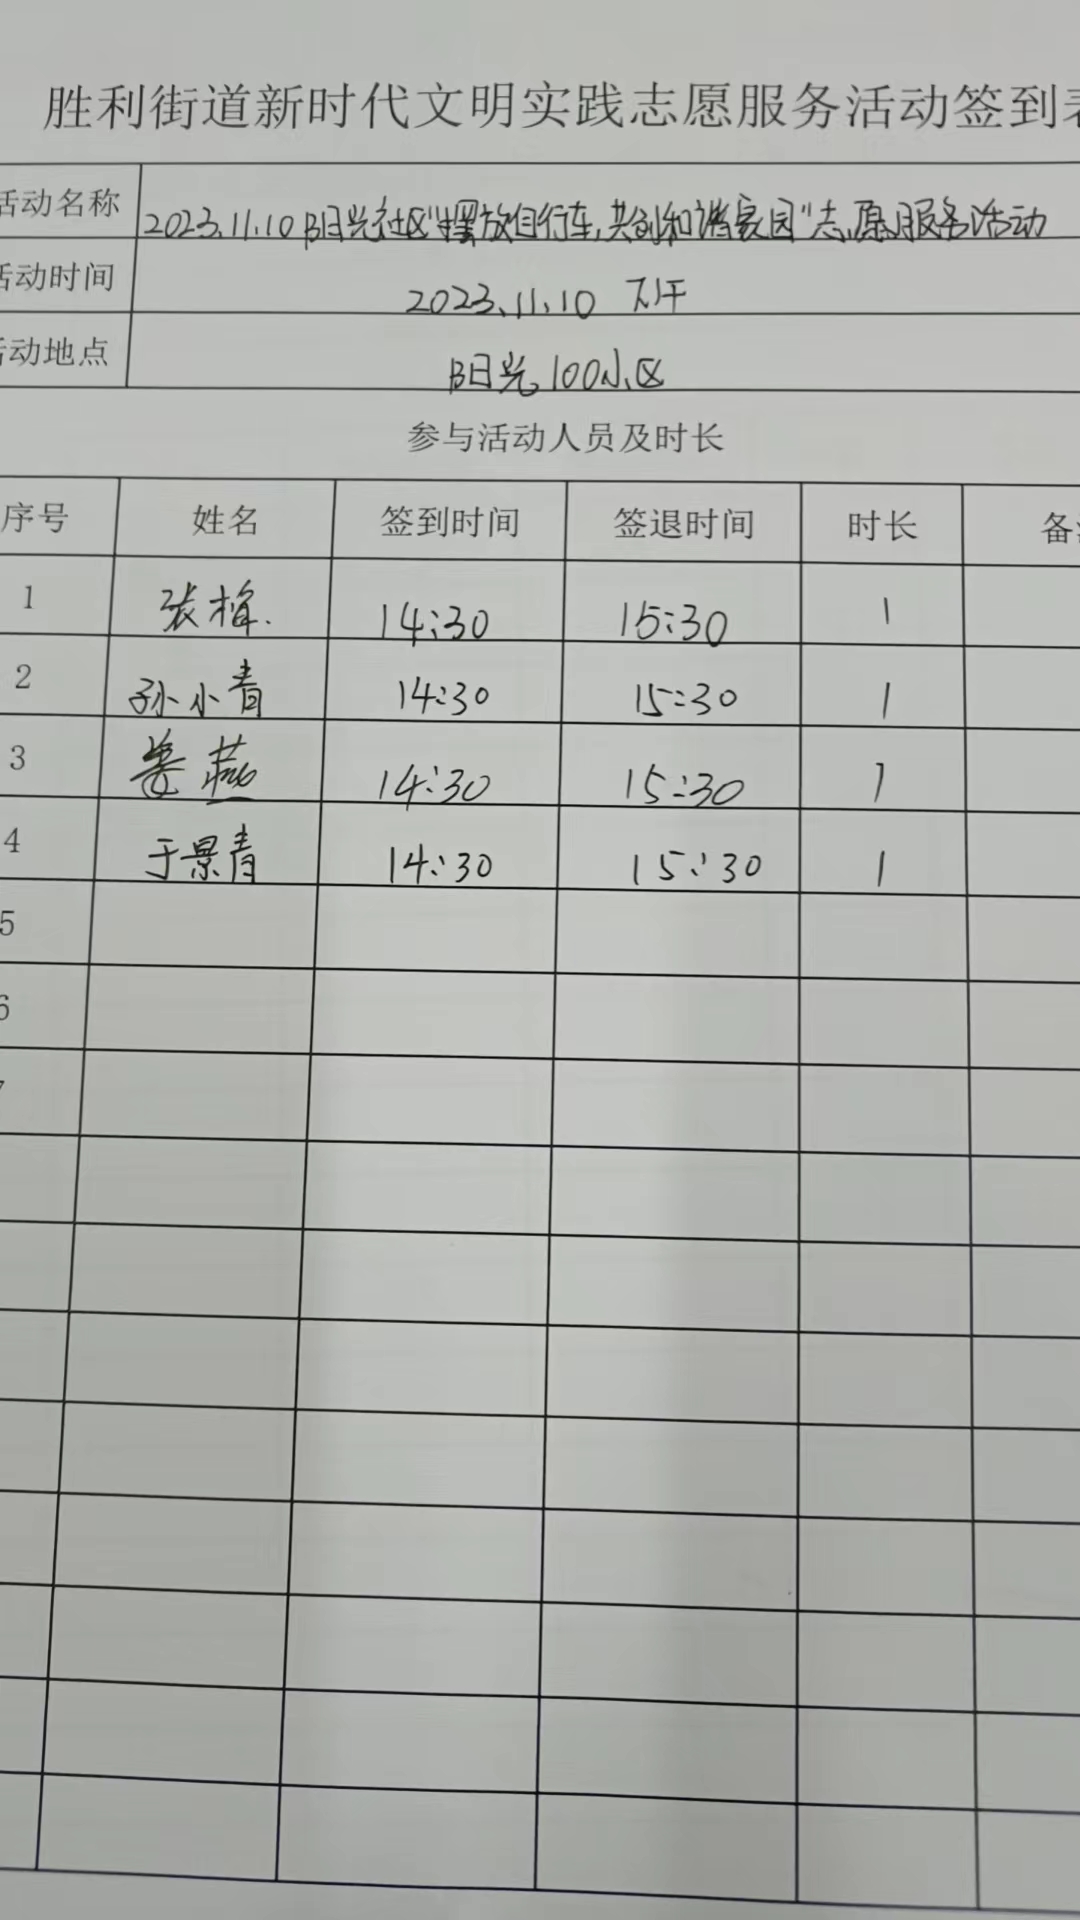 胜利街道新时代文明实践志愿服务活动签到表
活动名称 2023.11.10阳光社区"摆放自行车,共创和谐家园"志愿服务活动
活动时间 2023.11.10 下午
活动地点 阳光100小区
参与活动人员及时长
序号 姓名 签到时间 签退时间 时长 备注
1 张梅. 14:30 15:30 1
2 孙小青 14:30 15:30 1
3 姜燕 14:30 15:30 1
4 于景青 14:30 15:30 1
5
6
7